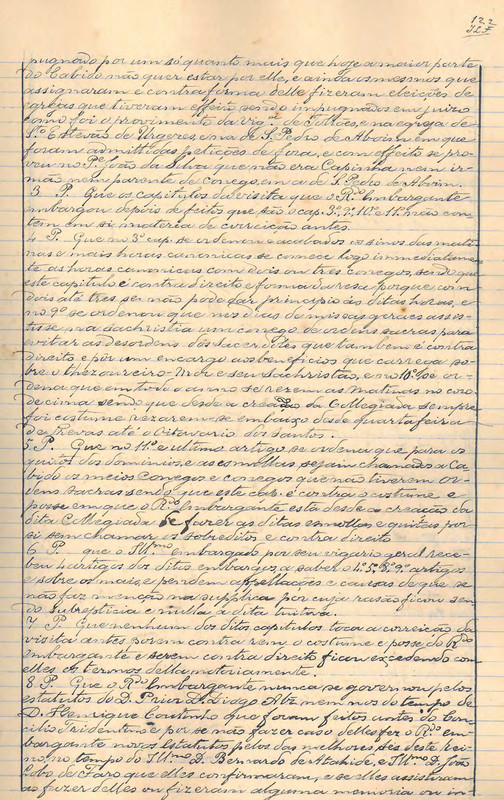 122
12 F
pugnado por um só quanto mais que hoje a maior parte
do Cabido não quer estar por elle, e ainda os mesmos que
assignaram e contra forma delle fizeram eleições de
egrejas que tiveram effeito sendo impugnados em juizo
como foi o provimento da vig.ª de Tolões, e na egreja de
S.to Estevão de Urgeres, e na de S. Pedro de Aboim em que
foram admittidas petições de fora, e com effeito se pro-
veu no P.e João da Silva que não era Capinha nem ir-
mão nem parente de conego, em a de S. Pedro de Aboim.
3 P. Que os capitulos da visita que o R.do Embargante
embargou depois de feitos que são o cap. 3º, 2º, 10º e 11º não con-
tem em si materia de correição antes.
4 P. Que no 3º cap. se ordena e acabados os sinos das mati-
nas e mais horas canonicas se comece logo immediatamen-
te as horas canonicas com dois ou tres conegos, sendo que
este capitulo é contra direito e forma da resa, porque com
dois até tres se não pode dar principio ás ditas horas, e
no 9º se ordenou que nos dias de missas geraes assis-
tisse na sachristia um conego de ordens sacras para
evitar as desordens dos sacerdotes que tambem é contra
direito e pôr um encargo aos beneficios que carrega so-
bre o thezoureiro-Mor e seu sachristão, e no 10º se or-
dena que em todo o anno se rezem as matinas no coro
de cima sendo que desde a creação da Collegiada sempre
foi costume rezarem-se em baixo desde quarta feira
de trevas até o oitavario dos santos.
5 P. Que no 11º e ultimo artigo se ordena que para os
quites dos dominios e as esmollas sejam chamados a Ca-
bido os meios Conegos e conegos que não tiverem or-
dens sacras sendo que este cap. é contra o costume e
posse em que o R.do Embargante está desde a creação da
dita Collegiada de fazer as ditas esmollas e quites por
si sem chamar os sobreditos e contra direito.
6 P. que o Ill.mo Embargado por seu vigario geral rece-
beu 4 artigos dos ditos embargos, a saber o 4º, 5º, 8º, 9º artigos
e sobre os mais, e pendem appellações e causas de que se
não faz menção na supplica por cuja rasão ficou sen-
do subrepticia e nulla a dita tuitiva.
7 P. Que nenhum dos ditos capitulos toca a correição de
visita, antes porem contra rem o costume e posse do R.do
embargante e serem contra direito ficou excedendo com
elles os termos della notoriamente.
8 P. Que o R.do Embargante nunca se governou pelos
estatutos do D. Prior D. Diogo Alz nem nos do tempo de
D. Henrique Coutinho que foram feitos antes do Con-
cilio tridentino e por se não fazer caso delles fez o R.do em-
bargante novos Estatutos pelos das melhores sés deste Rei-
no, no tempo do Ill.mo D. Bernardo de Athaide, e Ill.mo D. João
Lobo de Faro que elles confirmaram, e se elles assistiram
ao fazer delles ou fizeram alguma memoria ou in-